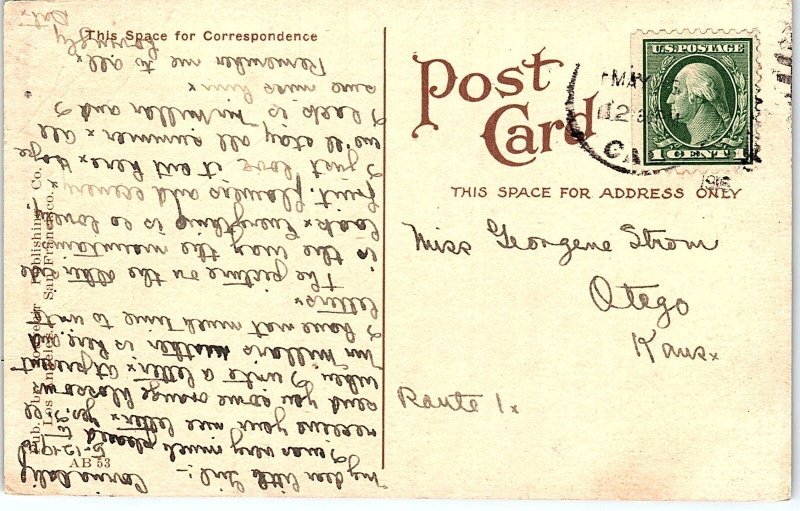 This Space for Correspondence
Post Card
THIS SPACE FOR ADDRESS ONLY
U.S. POSTAGE
1 CENT 1
MAY
Miss Georgene Strom
Otego
Kans
Route 1
Covina Calif
5-12-13
My dear little Girl:-
I was very much pleased to
receive your letter yes I'll
send you some orange blossoms
when I write a letter at present
Jim Millers mother is here and
I have not much time to write
letters
The picture on the other side
is the way the mountains
look Everything is so lovely,
fruit, flowers and scenery
I just love it out here hope
we'll stay all summer all
I lack is Jim Miller and I
sure miss him
Remember me to all
Lovingly
Pub. by Souvenir Publishing Co.
Los Angeles San Francisco
AB 53